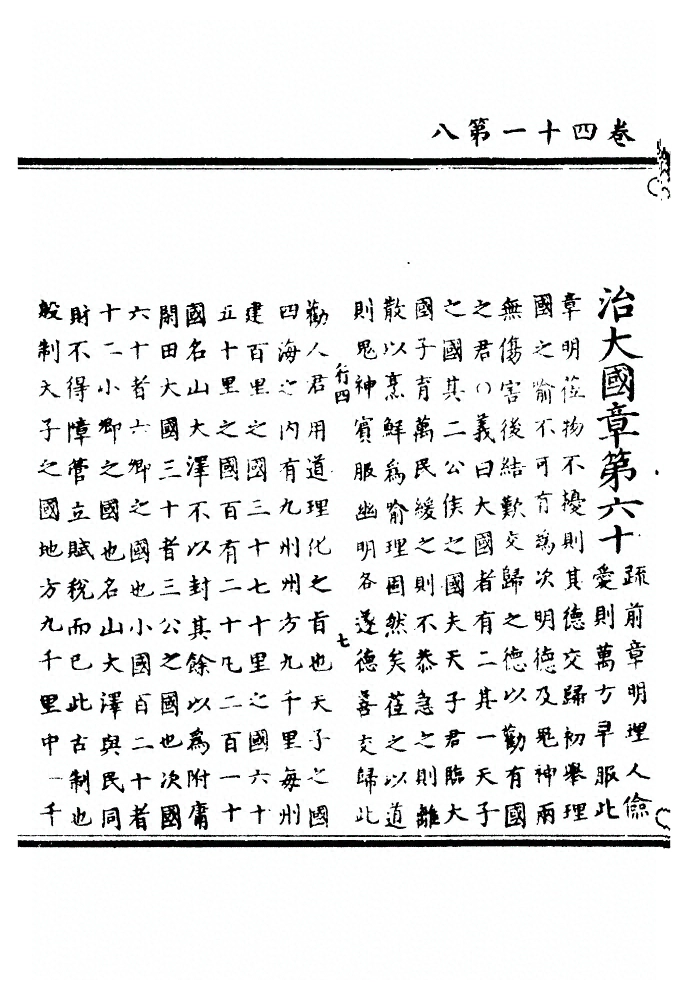 八第一十四卷
治大國章第六十
疏前章明理人儉
愛則萬方早服此
章明莅物不擾則其德交歸初舉理
國之喻不可有為次明德及鬼神兩
無傷害後結歎交歸之德以勸有國
之君〇義曰大國者有二其一天子
之國其二公侯之國夫天子君臨大
國子育萬民緩之則不恭急之則離
散以烹鮮為喻理固然矣莅之以道
則鬼神賓服幽明各遂德善交歸此
行四
七
勸人君用道理化之旨也天子之國
四海之內有九州州方九千里每州
建百里之國三十七十里之國六十
五十里之國百有二十凡二百一十
國名山大澤不以封其餘以為附庸
閑田大國三十者三公之國也次國
六十者六卿之國也小國百二十者
十二小卿之國也名山大澤與民同
財不得障管立賦稅而已此古制也
殷制天子之國地方九千里中一千